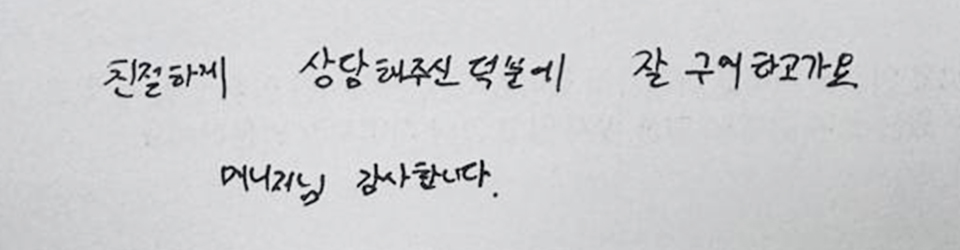 친절하게 상담해주신 덕분에 잘 구매하고가요
매니저님 감사합니다.